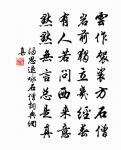 雲作袈裟方石僧
岩前獨立幾經春
有人若問西來意
默默無言總是
真
湯思退詠石僧詞典網